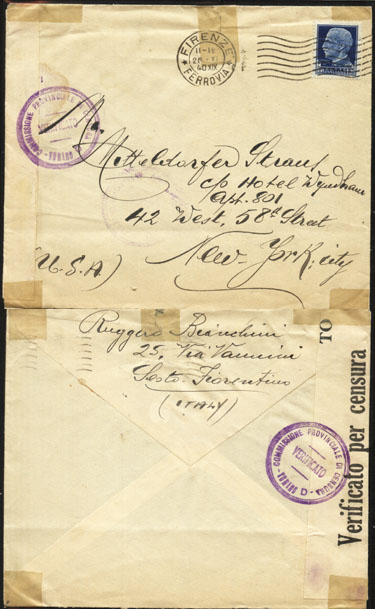 FIRENZE
FERROVIA
COMMISSIONE PROVINCIALE DI CENSURA
VERIFICATO
TORINO
Mr.
Mitteldorfer Straus
c/o Hotel Wyndham
Apt. 801
42 West, 58th Street
New-York. city
(U.S.A)
Ruggero Bianchini
25, Via Vannini
Sesto-Fiorentino
(ITALY)
TO
Verificato per censura
COMMISSIONE PROVINCIALE DI CENSURA
VERIFICATO
TORINO - D